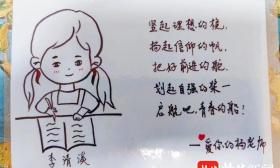 竖起理想的旗，
扬起信仰的帆，
把好前进的舵，
划起自强的桨—
启航吧，青春的船！
—爱你的杨老师
李清漪